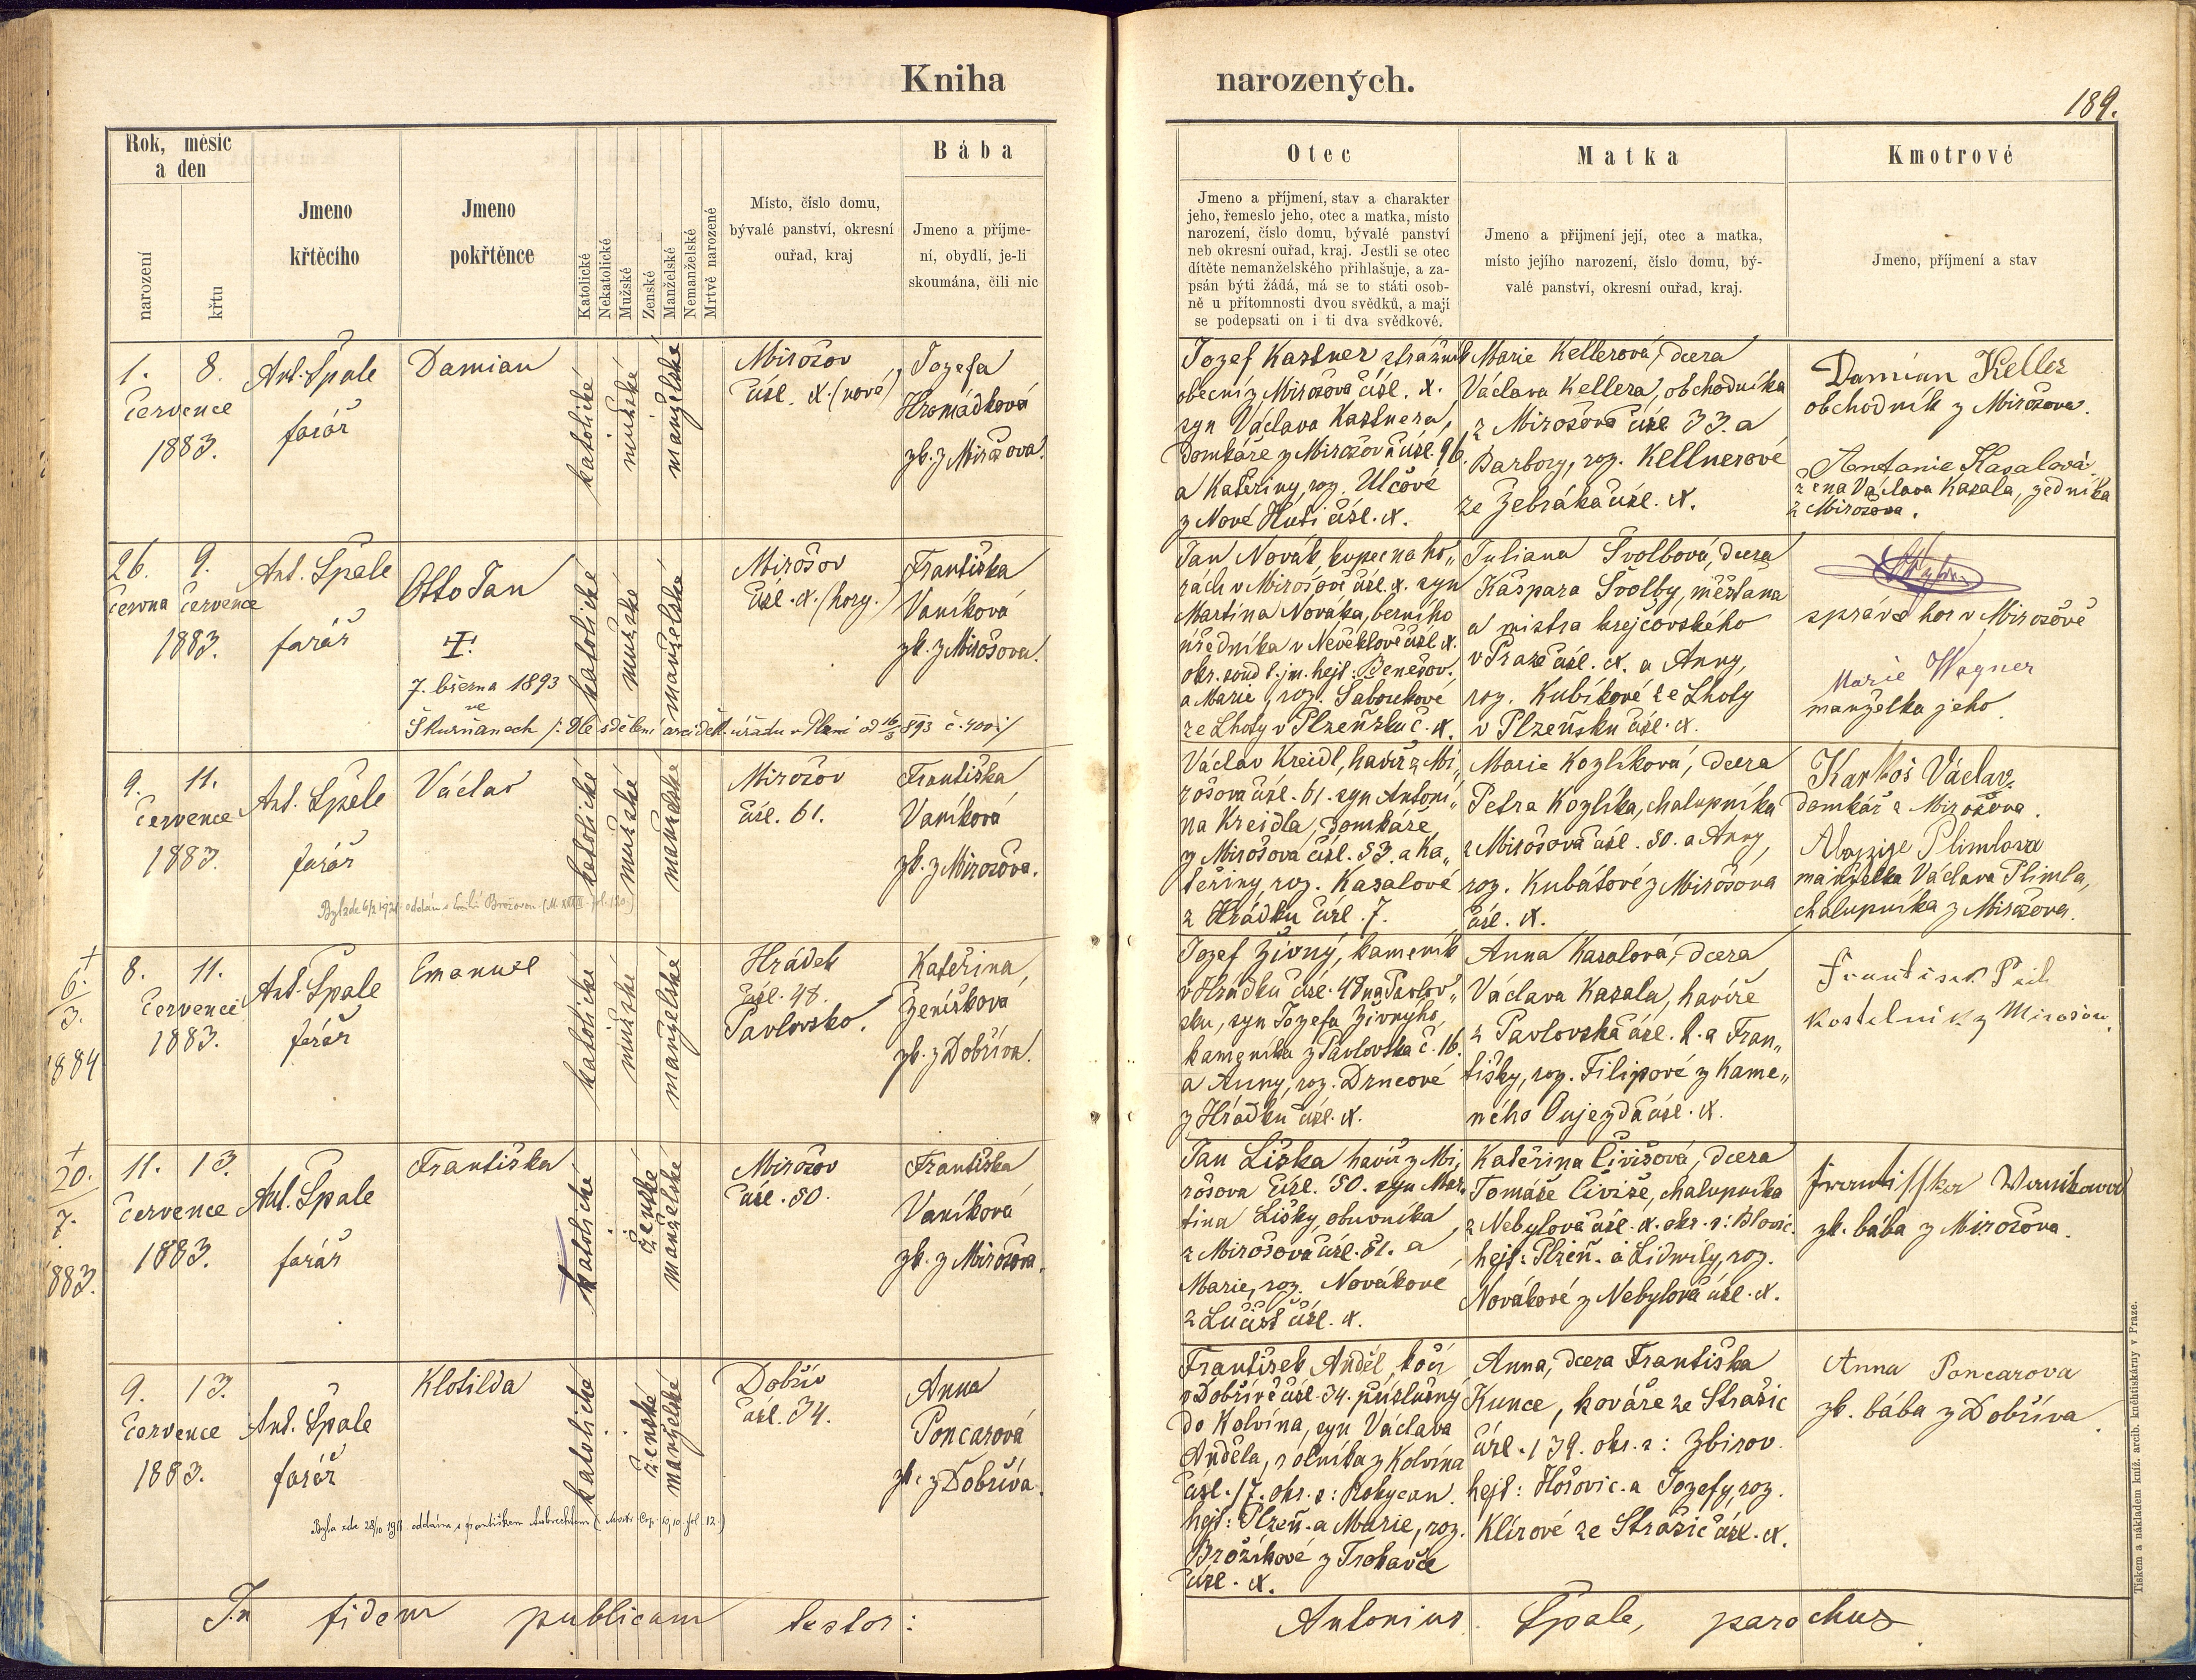 Kniha narozených.
189.
Rok, měsíc
a den
narození
křtu
Jmeno
křtěcího
Jmeno
pokřtěnce
Katolické
Nekatolické
Mužské
Ženské
Manželské
Nemanželské
Mrtvě narozené
Místo, číslo domu,
bývalé panství, okresní
ouřad, kraj
Bába
Jmeno a příjme-
ní, obydlí, je-li
skoumána, čili nic
Otec
Jmeno a příjmení, stav a charakter
jeho, řemeslo jeho, otec a matka, místo
narození, číslo domu, bývalé panství
neb okresní ouřad, kraj. Jestli se otec
dítěte nemanželského přihlašuje, a za-
psán býti žádá, má se to státi osob-
ně u přítomnosti dvou svědků, a mají
se podepsati on i ti dva svědkové.
Matka
Jmeno a přijmení její, otec a matka,
místo jejího narození, číslo domu, bý-
valé panství, okresní ouřad, kraj.
Kmotrové
Jmeno, příjmení a stav
1. 8.
července
1883.
Ant. Špale
farář
Damian
katolické
mužské
manželské
Mirošov
čísl. X. (nové)
Jozefa
Hromádková
zk. z Mirošova.
Jozef Kastner strážník
obecní z Mirošova čísl. X.
syn Václava Kastnera,
domkáře z Mirošova čísl. 96.
a Kateřiny, roz. Ulčové
z Nové Huti čísl. X.
Marie Kellerová, dcera
Václava Kellera, obchodníka
z Mirošova čísl. 33. a
Barbory, roz. Kellnerové
ze Žebráka čísl. X.
Damian Keller
obchodník z Mirošova.
Antonie Kasalová
žena Václava Kasala, zedníka
z Mirošova.
26. 9.
června července
1883.
Ant. Špale
farář
Otto Jan
7. března 1893
ve
Skurňanech /: Dle sdělení arciděk. úřadu v Plzni od 16/3 893 č. 400 :/
katolické
mužské
manželské
Mirošov
čísl. X. (hory.)
Františka
Vaníková
zk. z Mirošova.
Jan Novák, kupec na ho„
rách v Mirošově čísl. X. syn
Martina Nováka, berního
úředníka v Neveklově čísl. X.
okr. soud t. jm. hejt: Benešov.
a Marie, roz. Saboukové
ze Lhoty v Plzeňsku č. X.
Juliana Švolbová, dcera
Kašpara Švolby, měšťana
a mistra krejčovského
v Praze čísl. X. a Anny,
roz. Kubíkové ze Lhoty
v Plzeňsku čísl. X.
správce hor v Mirošově
Marie Wagner
manželka jeho.
9. 11.
července
1883.
Ant. Špale
farář
Václav
katolické
mužské
manželské
Mirošov
čísl. 61.
Františka
Vaníková
zk. z Mirošova.
Václav Kreidl, havíř z Mi„
rošova čísl. 61. syn Antoní„
na Kreidla, domkáře,
z Mirošova čísl. 53. a Ka„
teřiny, roz. Kasalové
z Hrádku čísl. 7.
Marie Kozlíková, dcera
Petra Kozlíka, chalupníka
z Mirošova čísl. 50. a Anny,
roz. Kubátové z Mirošova
čísl. X.
Karboš Václav
domkář z Mirošova.
Aloyzye Plimlova
manželka Václava Plimla,
chalupníka z Mirošova.
+
6.
3.
1884
8. 11.
července
1883.
Ant. Špale
farář
Emanuel
katolické
mužské
manželské
Hrádek
čísl. 48.
Pavlovsko.
Kateřina
Ženíšková
zk. z Dobříva.
Jozef Živný, kameník
v Hrádku čísl. 48 na Pavlov„
sku, syn Jozefa Živného,
kameníka z Pavlovska č. 16.
a Anny, roz. Drncové
z Hrádku čísl. X.
Anna Kasalová, dcera
Václava Kasala, havíře
z Pavlovska čísl. 2. a Fran„
tišky, roz. Filipové z Kame„
ného Oujezda čísl. X.
kostelník z Mirošova
+
20.
7.
883.
11. 13.
července
1883.
Ant. Špale
farář
Františka
katolické
ženské
manželské
Mirošov
čísl. 50.
Františka
Vaníková
zk. z Mirošova.
Jan Liška havíř z Mi„
rošova čísl. 50. syn Mar„
tina Lišky, obuvníka
z Mirošova čísl. 51. a
Marie, roz. Novákové
z Lučišť čísl. X.
Kateřina Čivišová, dcera
Tomáše Čiviše, chalupníka
z Nebylova čísl. X. okr. s: Blovic.
hejt: Plzeň. a Lidmily, roz.
Novákové z Nebylova čísl. X.
Frantisska Wanikowa
zk. bába z Mirošova.
9. 13.
července
1883.
Ant. Špale
farář
Klotilda
katolické
ženské
manželské
Dobřív
čísl. 34.
Anna
Poncarová
zk. z Dobříva.
František Anděl, kočí
v Dobřívě čísl. 34. příslušný
do Kolvína, syn Václava
Anděla, rolníka z Kolvína
čísl. 17. okr. s: Rokycan.
hejt: Plzeň. a Marie, roz.
Brožíkové z Trokavce
čísl. X.
Anna, dcera Františka
Kunce, kováře ze Strašic
čísl. 139. okr. s: Zbirov.
hejt: Hořovic. a Jozefy, roz.
Klírové ze Strašic čísl. X.
Anna Poncarova
zk. bába z Dobříva
In fidem publicam testor:
Antonius Špale, parochus
Tiskem a nákladem kníž. arcib. knihtiskárny v Praze.